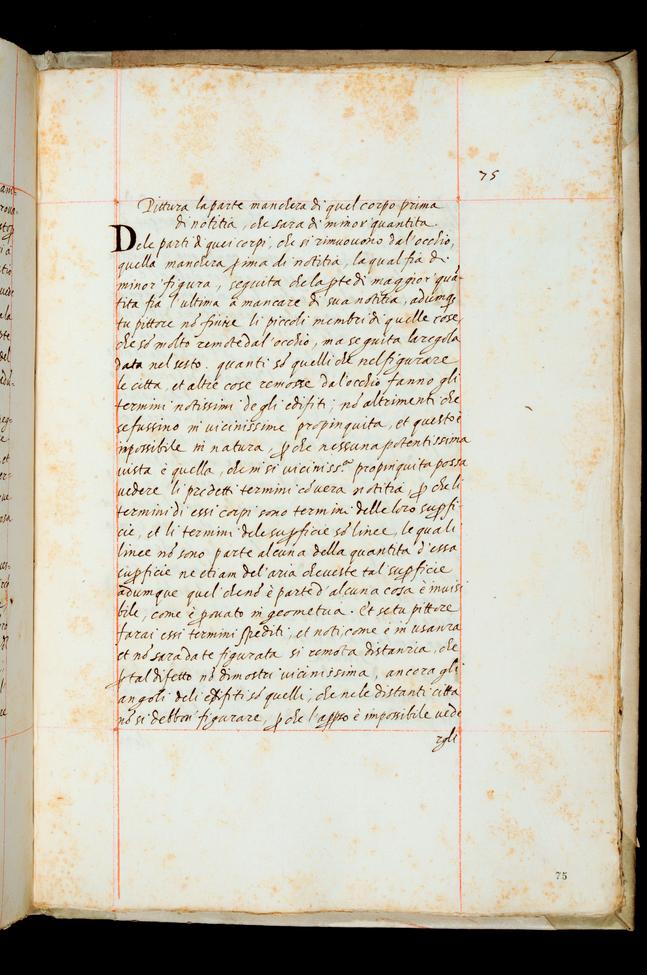 75
Pittura la parte mancherà di quel corpo prima
di notitia, che sara di minor quantita
Dele parti di quei corpi, che si rimuovono dal'occhio,
quella mancherà pima di notitia, la qual fia di
minor figura, seguita che la pte di maggior quã-
tita fia l'ultima à mancare di sua notitia, adumq;
tu pittore nõ finire li piccoli membri di quelle cose,
che sõ molto remote dal'occhio, ma seguita la regola
data nel sesto. quanti sõ quelli che nel figurare
le citta, et altre cose remosse dal'occhio fanno gli
termini notissimi degli edifiti; nõ altrimenti che
se fussino in vicinissime propinquita, et questo è
impossibile in natura, pche nessuna potentissima
vista è quella, che in si viciniss.ma propinquita possa
vedere li predetti termini cõ vera notitia, pche li
termini di essi corpi sono termini delle loro supfi-
cie, et li termini dele supficie sõ linee, le quali
linee nõ sono parte alcuna della quantita d'essa
supficie ne etiam del'aria che veste tal supficie
adumque quel che nõ è parte d'alcuna cosa è invisi
bile, come è pvato in geometria. Et se tu pittore
farai essi termini spediti, et noti, come è in usanza
et nõ sara da te figurata si remota distanzia, che
p tal difetto nõ dimostri vicinissima, ancora gli
angoli deli edifiti sõ quelli, che nele distanti citta
nõ si debbon figurare, pche l'appsso è impossibile vede
rgli
75